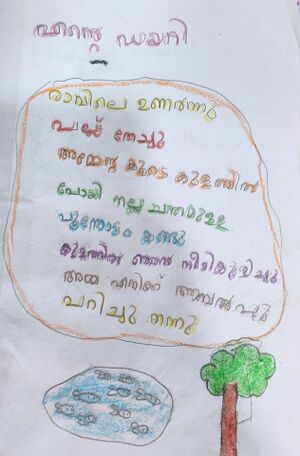 എന്റെ ഡയറി
രാവിലെ ഉണർന്നു
പല്ല് തേച്ചു
അമ്മേന്റ കൂടെ കുളത്തിൽ
പോയി നല്ല ചന്തമുള്ള
പൂന്തോട്ടം കണ്ടു
കുളത്തിൽ ഞാൻ നീടികുളിച്ചു
അമ്മ എനിക്ക് ആമ്പൽ പൂ
പറിച്ചു തന്നു